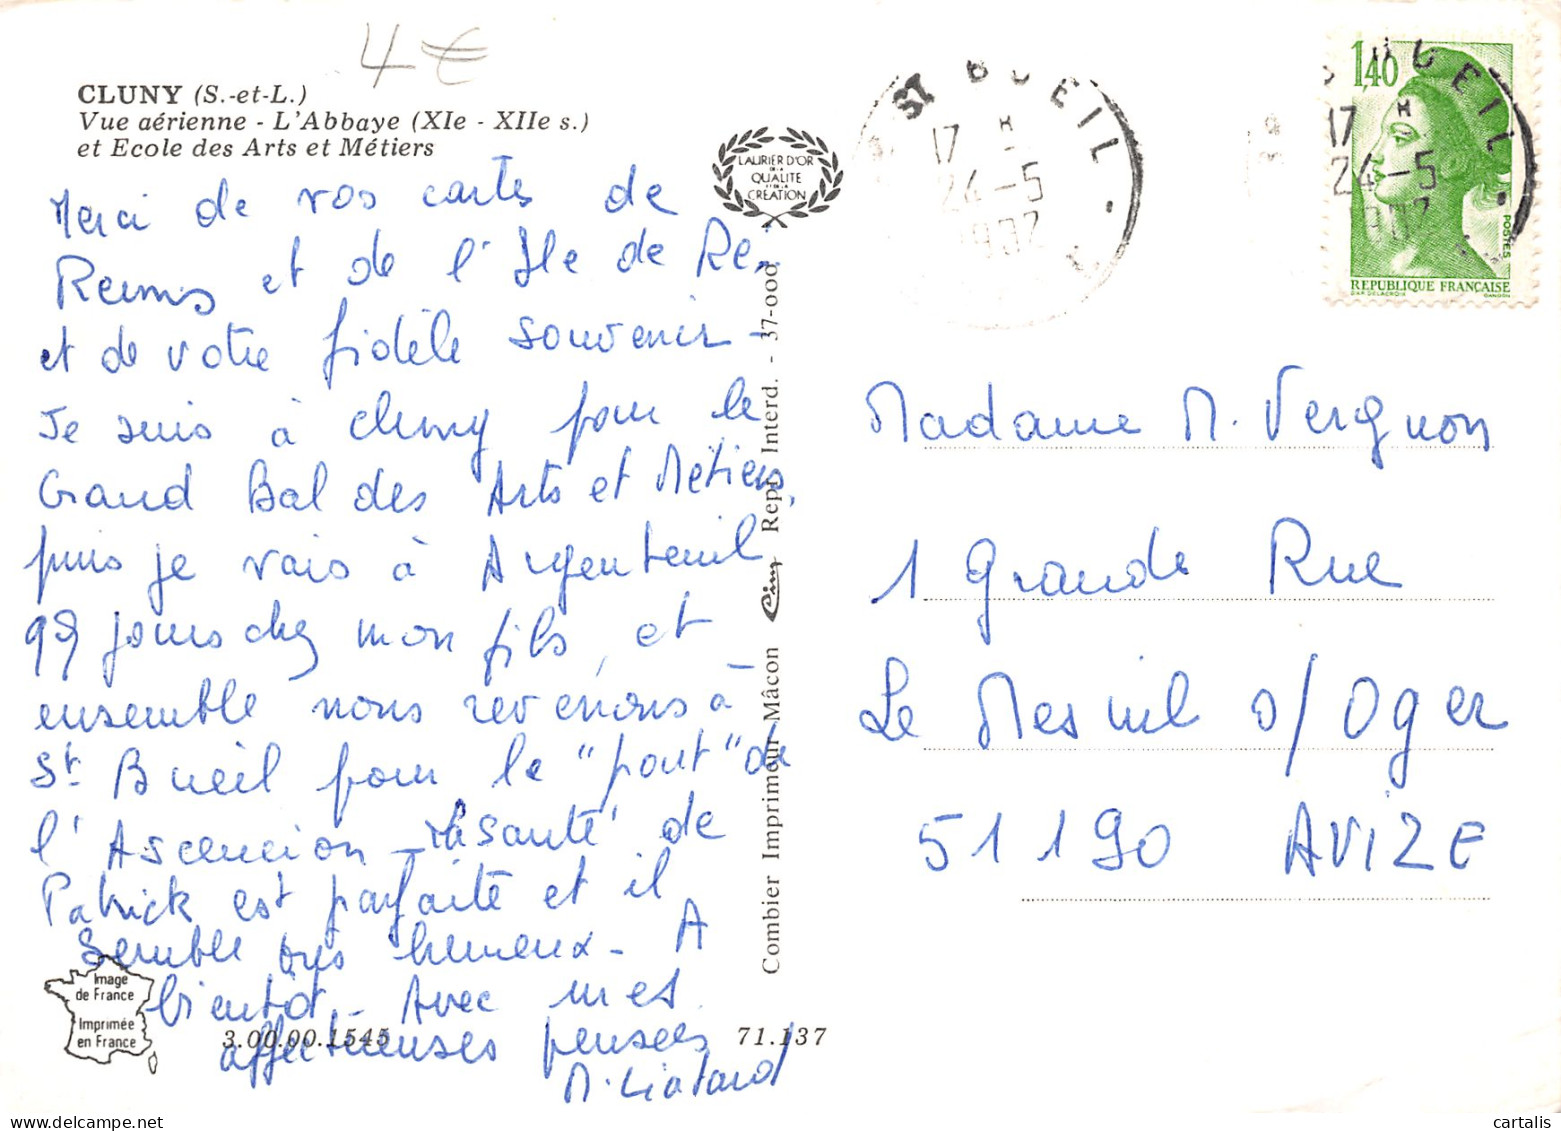 4 €
CLUNY (S.-et-L.)
Vue aérienne - L'Abbaye (XIe - XIIe s.)
et Ecole des Arts et Métiers
LAURIER D'OR
DE LA
QUALITE
ET DE LA
CREATION
Merci de vos cartes de
Reims et de l'Ile de Ré,
et de votre fidèle souvenir -
Je suis à Cluny pour le
Grand Bal des Arts et Métiers,
puis je vais à Argenteuil
qq jours chez mon fils, et
ensemble nous revenons à
St Bueil pour le "pont" de
l'Ascencion - la santé de
Patrick est parfaite et il
semble très heureux - A
bientôt - Avec mes
affectueuses pensées
M. Liatard
Image
de France
Imprimée
en France
3.00.00.1545
71.137
Combier Imprimeur Mâcon Cim Rept. Interd. - 37-000
ST BUEIL
17 H
24-5
1982
1,40
POSTES
REPUBLIQUE FRANÇAISE
DAP DELACROIX
GANDON
BUEIL
17 H
24-5
1982
Madame M. Vergnon
1 Grande Rue
Le Mesnil s/Oger
51190 AVIZE
cartalis